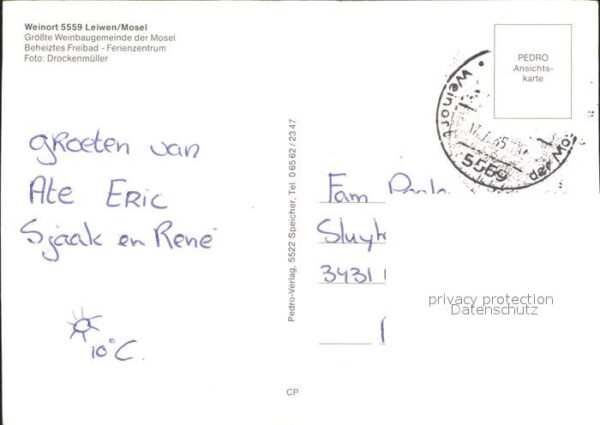 Weinort 5559 Leiwen/Mosel
Größte Weinbaugemeinde der Mosel
Beheiztes Freibad - Ferienzentrum
Foto: Drockenmüller
PEDRO
Ansichts-
karte
Weinort
5559
der Mo
groeten van
Ate ERIC
Sjaak en René
10°C.
Pedro-Verlag, 5522 Speicher, Tel. 0 65 62 / 23 47
Fam
3431
privacy protection
Datenschutz
CP